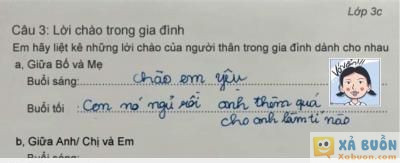 Lớp 3c
Câu 3: Lời chào trong gia đình
Em hãy liệt kê những lời chào của người thân trong gia đình dành cho nhau
a, Giữa Bố và Mẹ
Buổi sáng: chào em yêu
Buổi tối : Con nó ngủ rồi anh thèm quá
cho anh làm tí nào
b, Giữa Anh/ Chị và Em
Buổi sáng:
XẢ BUỒN